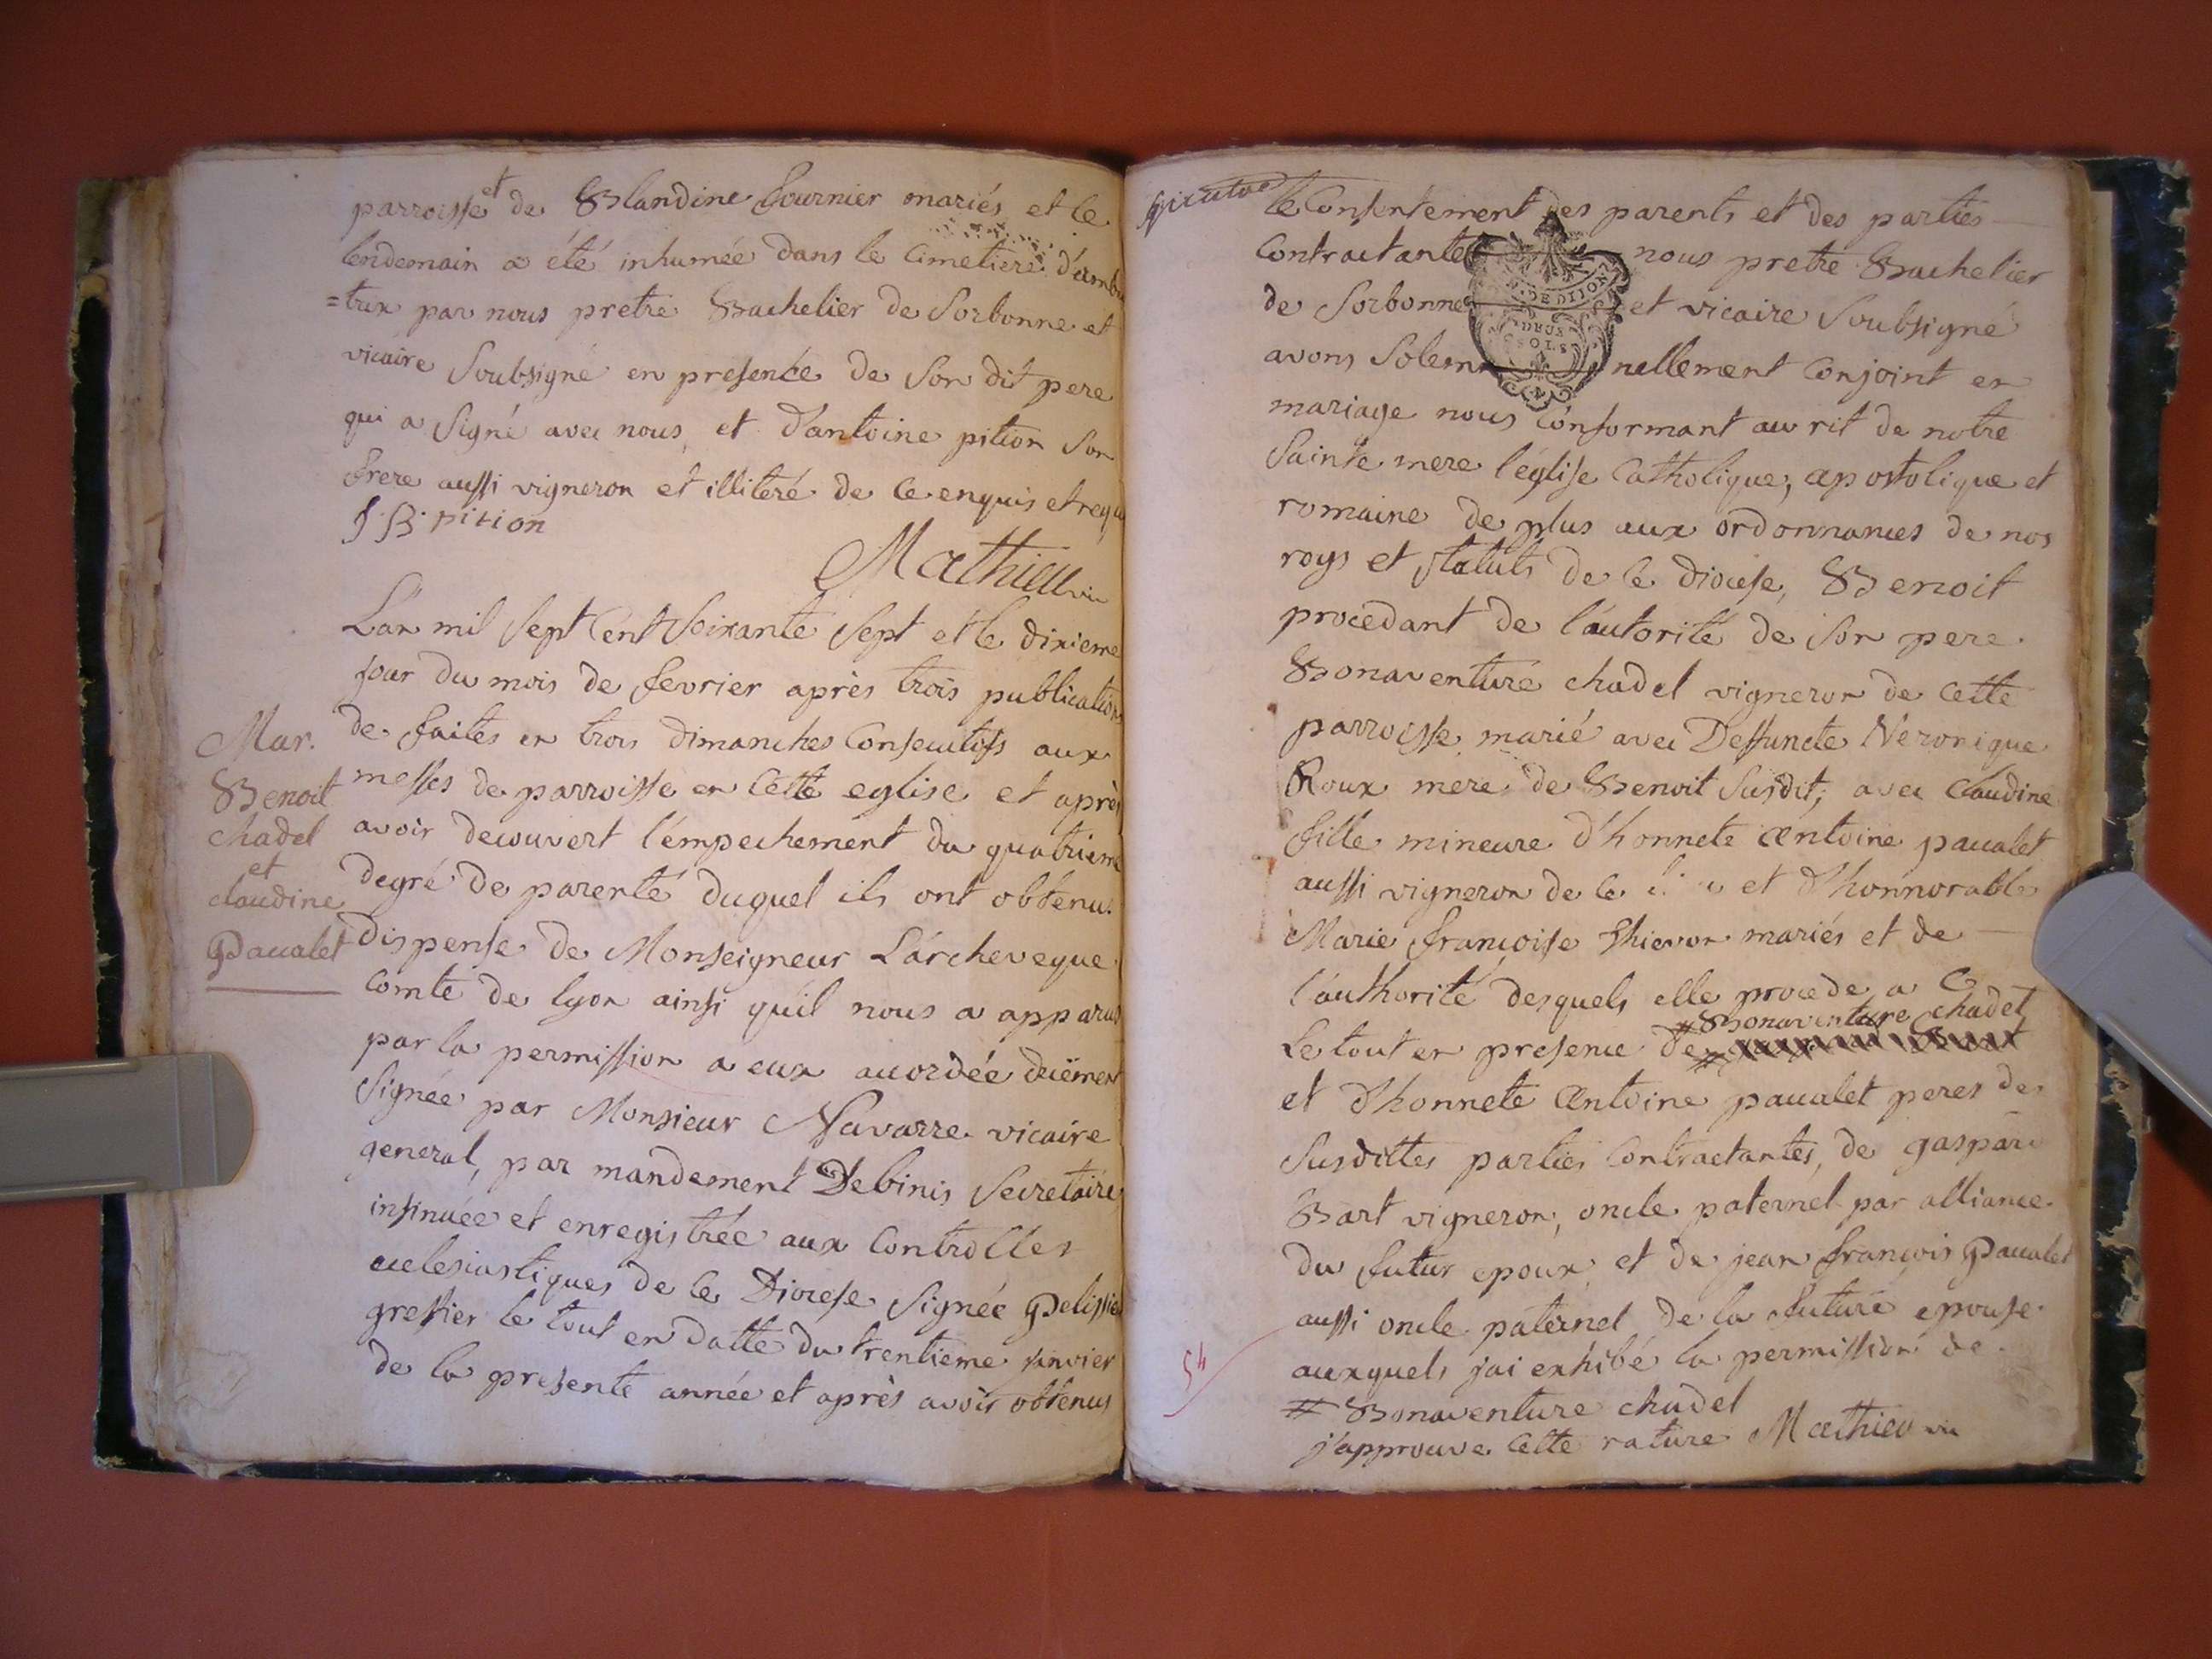 parroisse et de Blandine fournier mariés et le
lendemain a été inhumée dans le Cimetiere d'ambu
=trix par nous pretre Bachelier de Sorbonne et
vicaire Soubsigné en presence de Son dit pere
qui a Signé avec nous, et d'antoine pition Son
frere aussi vigneron et illiteré de ce enquis et requis
J B pition
Mathieu vic
L'an mil Sept Cent Soixante Sept et le dixieme
jour du mois de fevrier après trois publications
de faites en trois dimanches Consecutifs aux
messes de parroisse en Cette eglise et après
avoir decouvert l'empechement du quatrieme
degré de parenté duquel ils ont obtenus
dispense de Monseigneur L'archeveque
Comte de lyon ainsi qu'il nous a apparus
par la permission a eux accordée duëment
Signée par Monsieur Navarre vicaire
general, par mandement Debinis Secretaire
insinuée et enregistrée aux Controlles
ecclesiastiques de ce Diocese Signée Pelissier
greffier le tout en datte du trentieme janvier
de la presente année et après avoir obtenus
Mar.
Benoit
chadel
et
claudine
Paualet
le Consentement des parents et des parties
Contractantes nous pretre Bachelier
de Sorbonne et vicaire Soubsigné
avons Solemnellement Conjoint en
mariage nous Conformant au rit de notre
Sainte mere l'église Catholique, apostolique et
romaine de plus aux ordonnances de nos
roys et statuts de ce diocese, Benoit
procedant de l'autorité de Son pere
Bonaventure chadel vigneron de Cette
parroisse marié avec Deffuncte Veronique
Roux mere de Benoit Susdit, avec Claudine
fille mineure d'honnete antoine paualet
aussi vigneron de ce et d'honnorable
Marie françoise Thievon mariés et de
l'authorité desquels elle procede a Ce
# Bonaventure chadel
Le tout en presence de #
et d'honnete Antoine paualet peres des
Susdittes parties Contractantes, de gaspard
Bart vigneron, oncle paternel par alliance
du futur epoux, et de jean françois Paualet
aussi oncle paternel de la future epouse
auxquels j'ai exhibé la permission de
# Bonaventure chadel
j'approuve Cette rature Mathieu vic
N. DE DIJON
SOLS
54